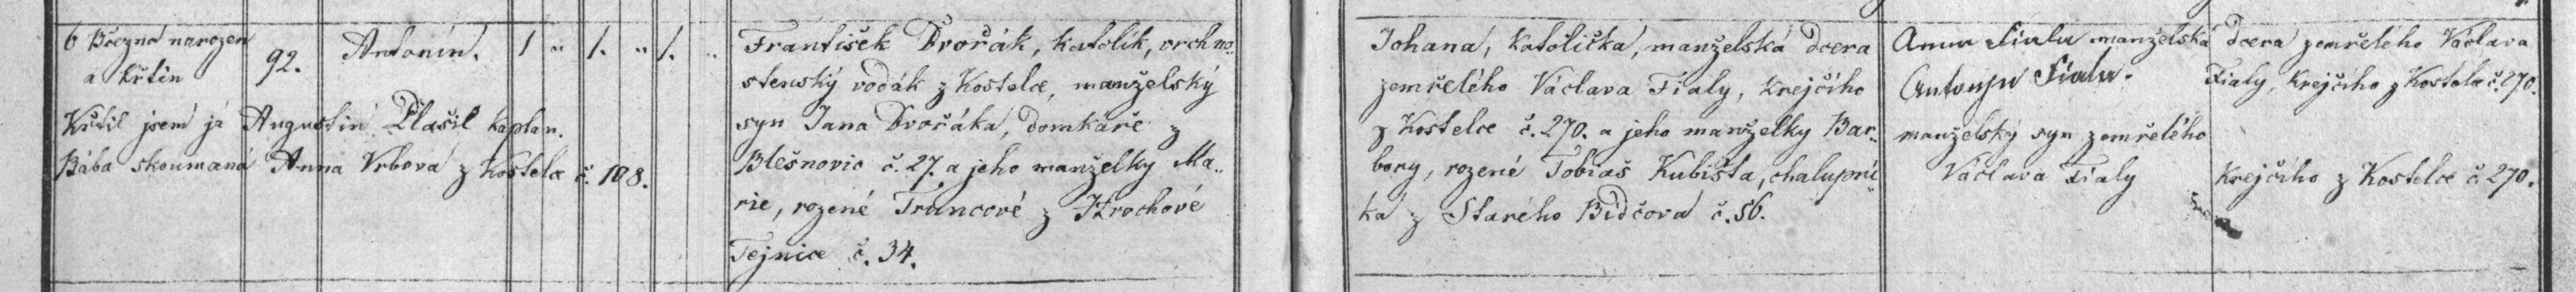 6 Března narozen
a křtěn
92.
Antonín.
1 " 1. " 1. "
Křtil jsem já Augustin Plašil kaplan.
Bába skoumaná Anna Vrbova z Kostelce č. 108.
František Dvořák, katolík, vrchno-
stenský voďák z Kostelce, manželský
syn Jana Dvořáka, domkáře z
Blešnovic č. 27. a jeho manželky Ma-
rie, rozené Truncové z Hrochové
Tejnice č. 34.
Johana, Katolička, manželská dcera
zemřelého Václava Fialy, krejčího
z Kostelce č. 270. a jeho manželky Bar-
bory, rozené Tobiaš Kubišta, chalupní-
ka z Starého Bidčova č. 56.
Anna Fiala manželská
Antonjn Fiala.
manželský syn zemřelého
Václava Fialy
dcera zemřelého Václava
Fialy, krejčího z Kostelce č. 270.
Krejčího z Kostelce č. 270.